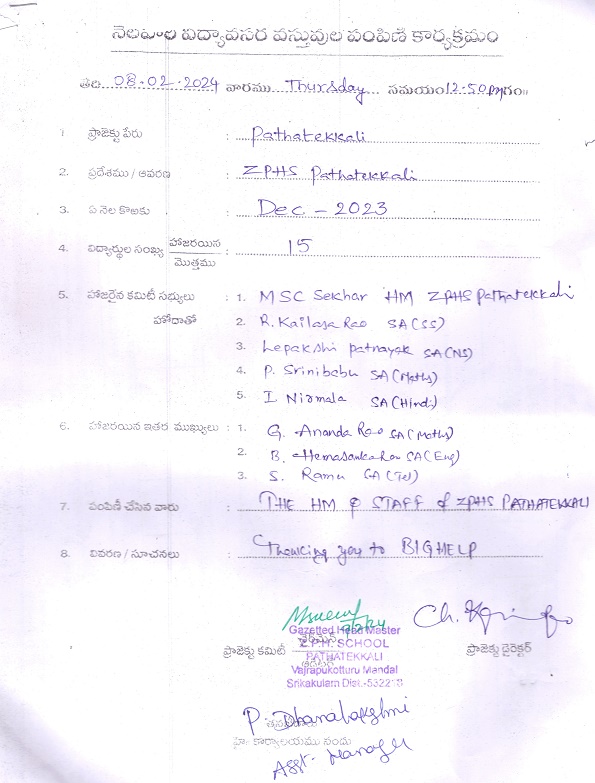 నెలవారి విద్యావసర వస్తువుల పంపిణి కార్యక్రమం
తేది 08.02.2024 వారము Thursday సమయం 12:50 PM గం॥
1. ప్రాజెక్టు పేరు : Pathatekkali
2. ప్రదేశము / ఆవరణ : ZPHS Pathatekkali
3. ఏ నెల కొఱకు : Dec - 2023
4. విద్యార్థుల సంఖ్య హాజరయిన : 15
మొత్తము
5. హాజరైన కమిటీ సభ్యులు : 1. MSC Sekhar HM ZPHS Pathatekkali
హోదాతో 2. R. Kailasa Rao SA (SS)
3. Lepakshi patnayak SA (NS)
4. P. Srinibabu SA (Maths)
5. I. Nirmala SA (Hindi)
6. హాజరయిన ఇతర ముఖ్యులు : 1. G. Ananda Rao SA (Maths)
2. B. Hemasankara Rao SA (Eng)
3. S. Ramu SA (Tel)
7. పంపిణీ చేసిన వారు : THE HM & STAFF of ZPHS PATHATEKKALI
8. వివరణ / సూచనలు : Thanking you to BIGHELP
Gazetted Head Master
ప్రాజెక్టు కమిటీ ఛైర్మెన్ Z.P.H. SCHOOL ప్రాజెక్టు డైరెక్టర్
PATHATEKKALI
Vajrapukotturu Mandal
Srikakulam Dist.-532218
P. Dhanalakshmi
కార్యాలయము నందు
Asst. Manager